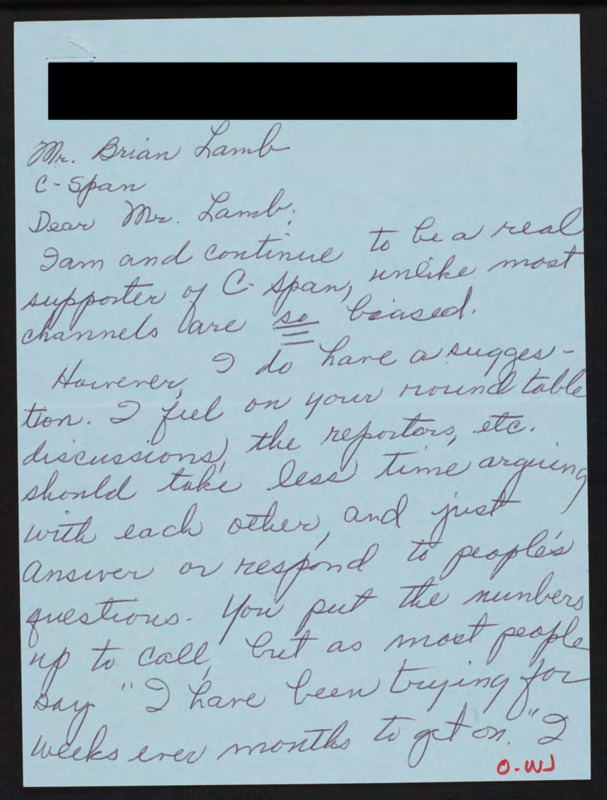 Mr. Brian Lamb
C-Span
Dear Mr. Lamb;
I am and continue to be a real
supporter of C-Span, unlike most
channels are so biased.
However, I do have a sugges-
tion. I feel on your round table
discussions, the reportors, etc.
should take less time arguing
with each other, and just
answer or respond to people's
questions. You put the numbers
up to call, but as most people
say "I have been trying for
weeks ever months to get on." I
O.WJ